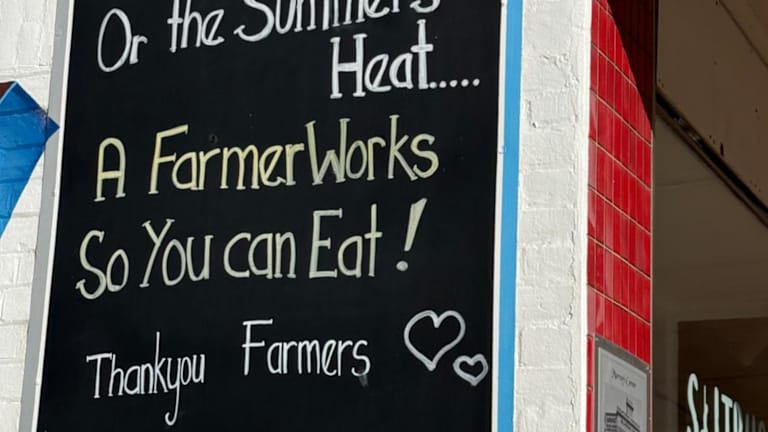 Or the Summers
Heat.....
A Farmer Works
So You can Eat!
Thankyou Farmers